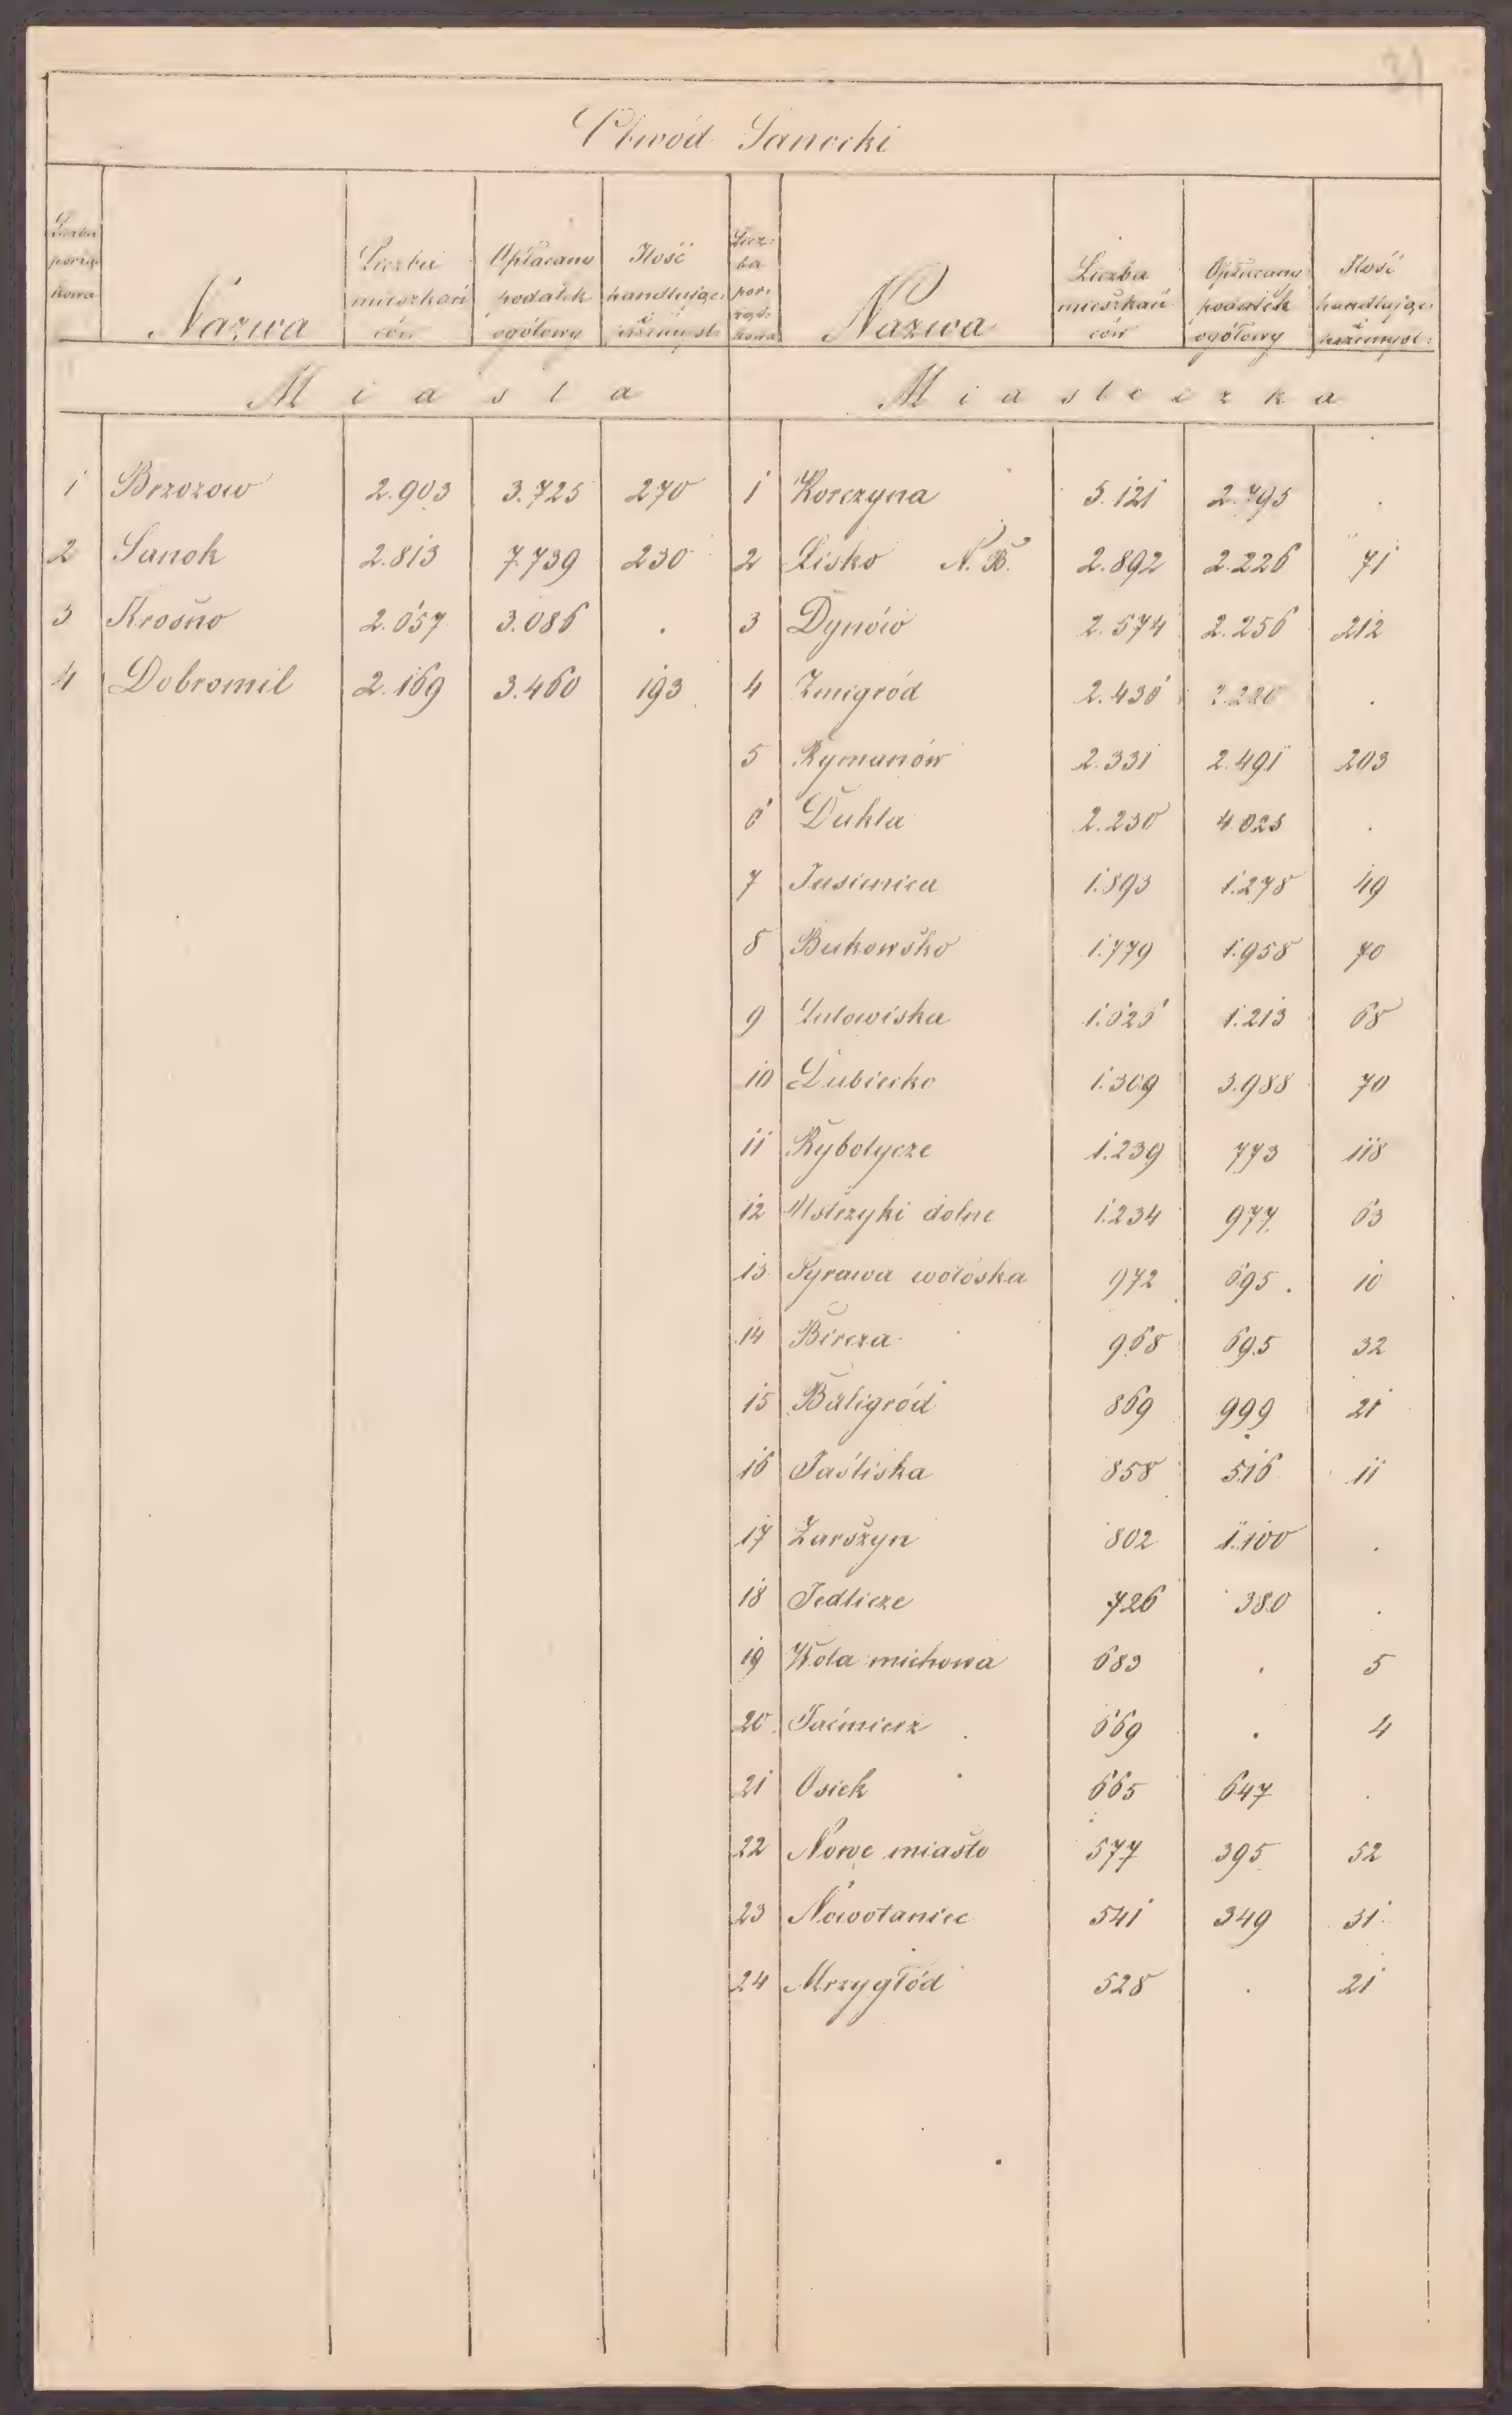 Obwód Sanocki
Liczba porząd kowa Nazwa Liczba mieszkań ców Opłacany podatek ogółowy Ilość handlując: i przemysł: Licz: ba porz ząd: kowa Nazwa Liczba mieszkań ców Opłacany podatek ogółowy Ilość handlując: i przemysł:
Miasta Miasteczka
1 Brzozow 2.903 3.725 270 1 Korczyna 5.121 2.795 .
2 Sanok 2.813 7.739 230 2 Lisko N.B. 2.892 2.226 71
3 Krosno 2.657 3.086 . 3 Dynów 2.574 2.256 212
4 Dobromil 2.169 3.460 193 4 Zmigród 2.430 .
5 Rymanów 2.331 2.491 203
6 Dukla 2.230 4.025 .
7 Jasienica 1.893 1.278 49
8 Bukowsko 1.779 1.958 70
9 Lutowiska 1.213 68
10 Dubiecko 1.309 3.988 70
11 Rybotycze 1.239 773 118
12 Ustrzyki dolne 1.234 977 63
13 Tyrawa wołoska 972 695 . 10
14 Bircza 968 695 32
15 Baligród 869 999 21
16 Jaśliska 858 516 11
17 Zarszyn 802 1.100 .
18 Jedlicze 726 380 .
19 Wola michowa 683 . 5
20 Jaćmierz 669 . 4
21 Osiek 665 647 .
22 Nowe miasto 577 395 52
23 Nowotaniec 541 349 31
24 Mrzygłód 528 . 21